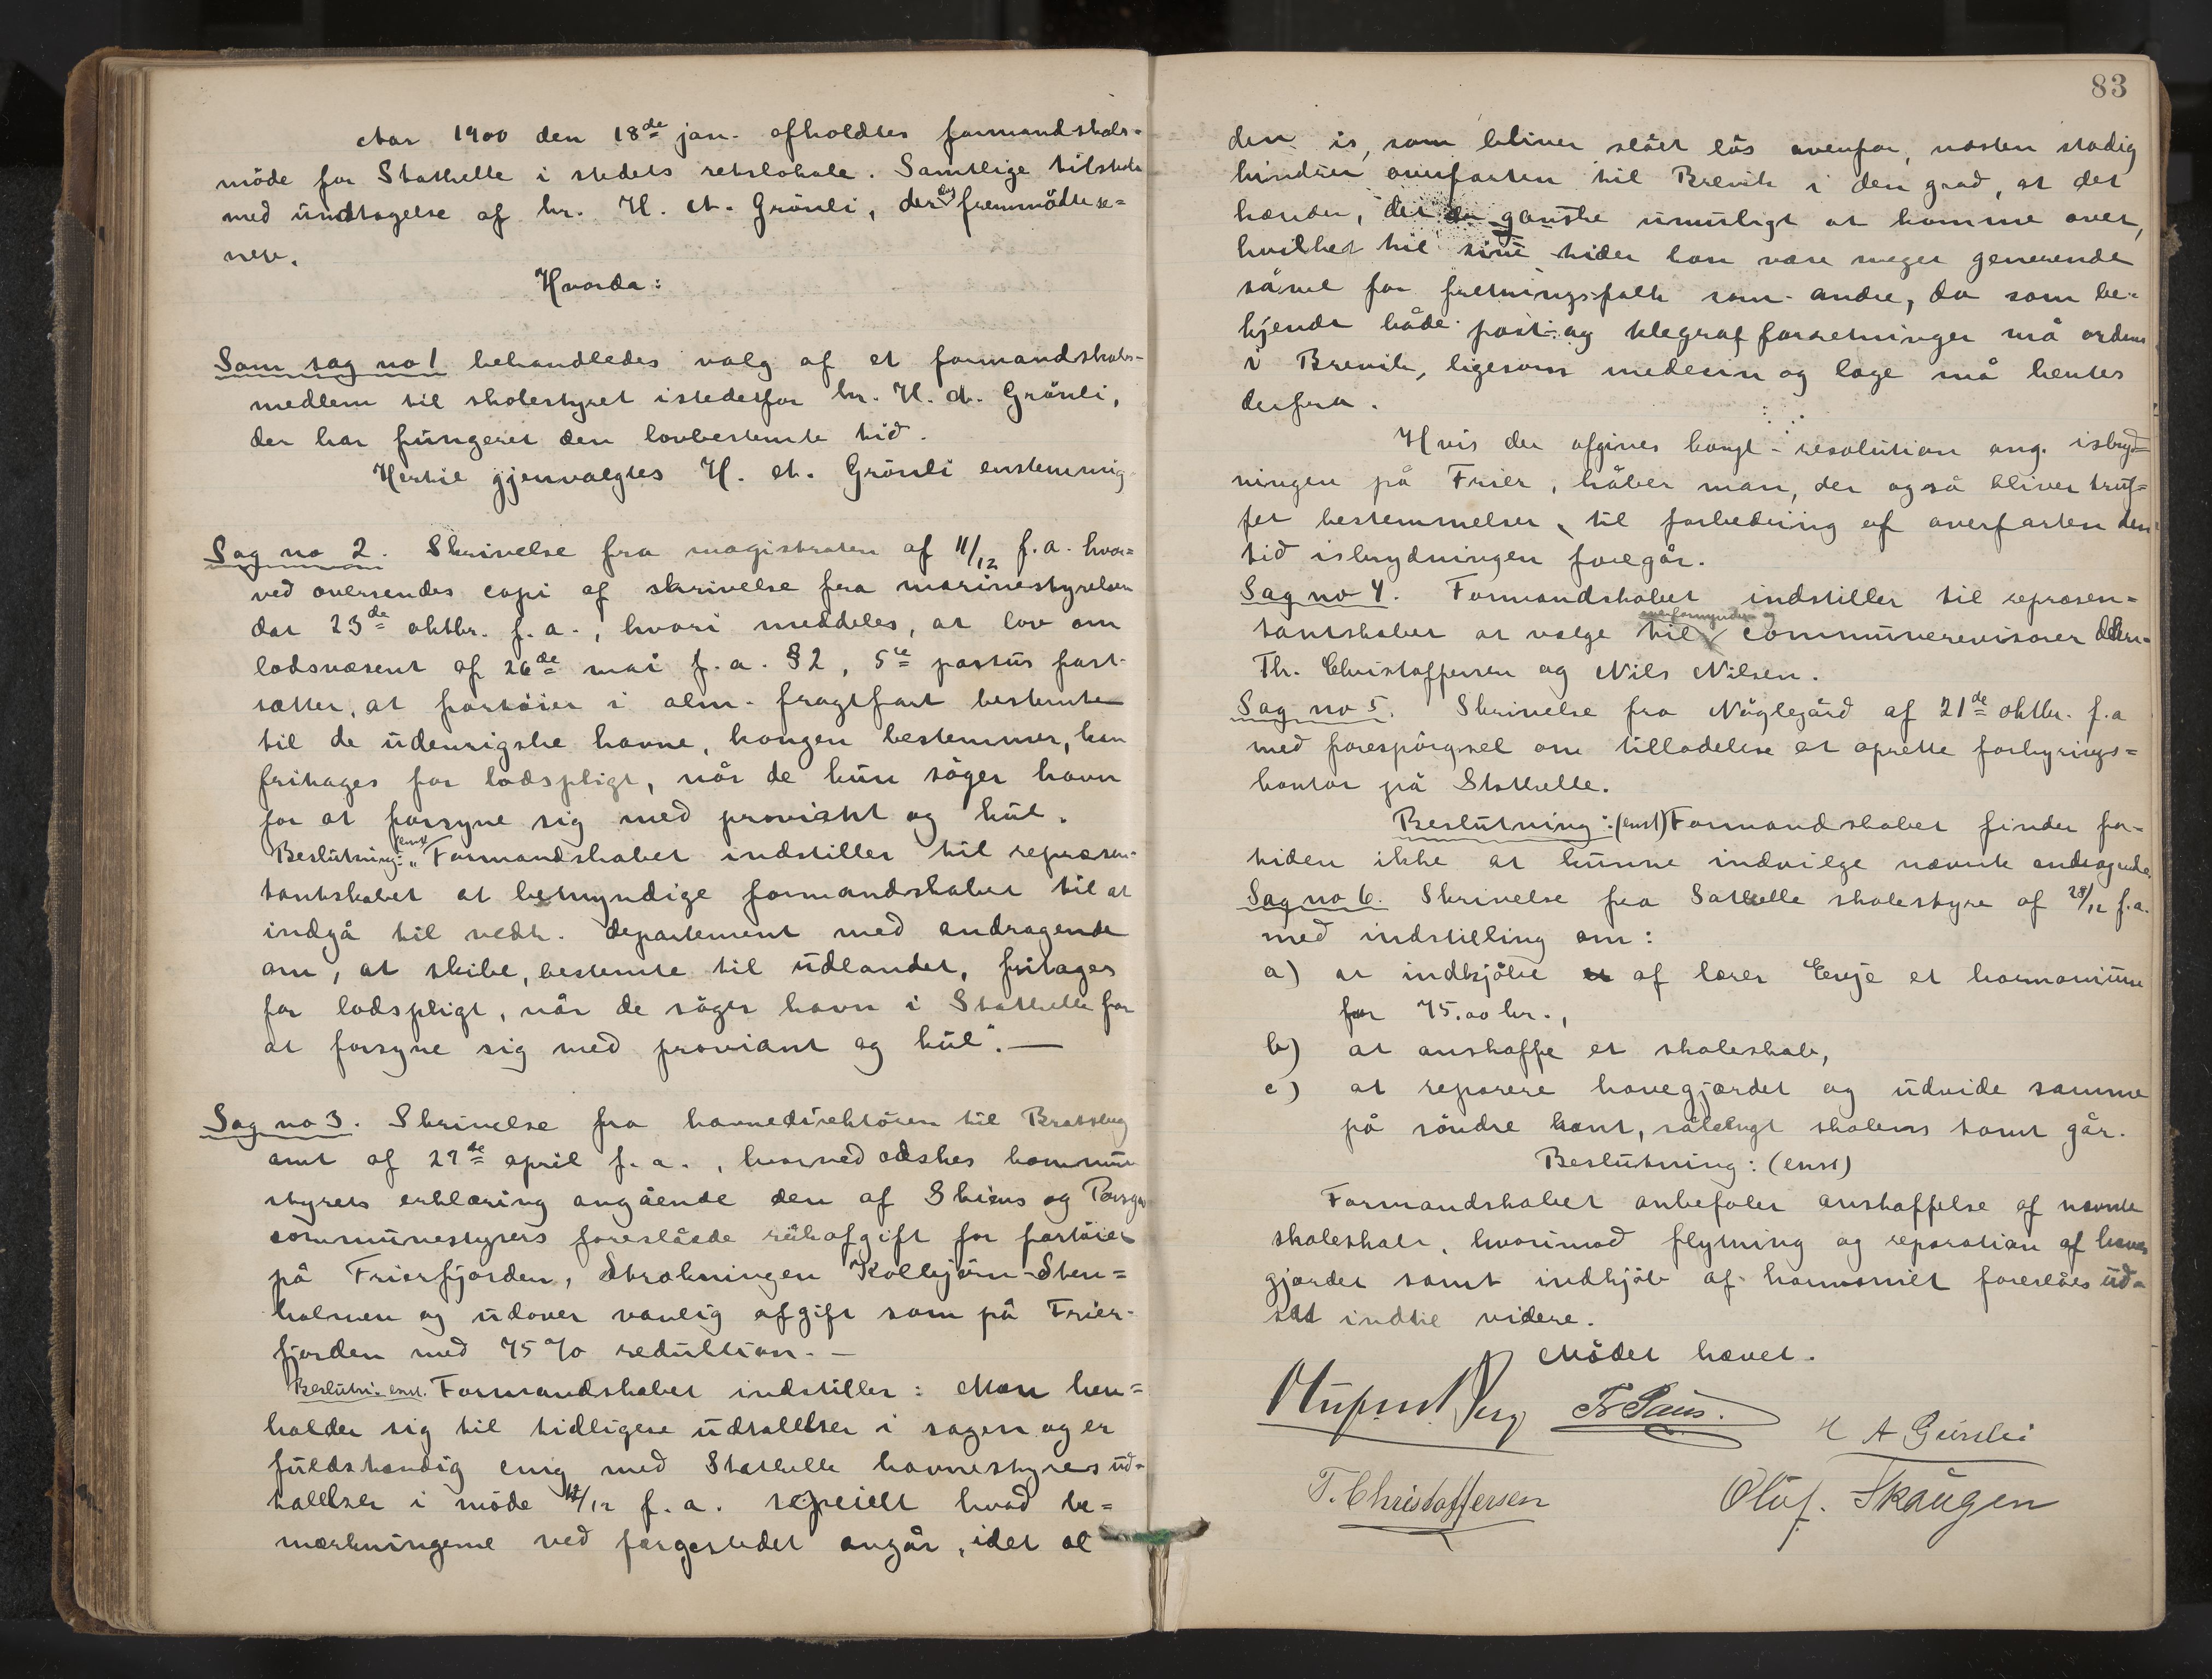 Aar 1900 den 18de jan. afholdtes formandskabs-
möde for Stathelle i stedets retslokale. Samtlige tilstede
med undtagelse af hr. H. A. Grönli, der dog fremmödte se-
nere.
Hvorda:
Som sag no 1 behandledes valg af et formandskabs-
medlem til skolestyret istedetfor hr. H. A. Grönli,
der har fungeret den lovbestemte tid.
Hertil gjenvalgtes H. A. Grönli enstemmig.
Sag no 2. Skrivelse fra magistraten af 11/12 f.a. hvor=
ved oversendes copi af skrivelse fra marinestyrelsen
dat 23de oktbr. f.a., hvori meddeles, at lov om
lodsvæsent af 26de mai f.a. §2, 5te passus fast-
sætter, at fartöier i alm. fragtfart bestemte
til de udenrigske havne, kongen bestemmer, kan
fritages for lodspligt, når de kun söger havn
for at forsyne sig med proviant og kul.
Beslutning: enst „Formandskabet indstiller til repræsen-
tantskabet at bemyndige formandskabet til at
indgå til vedk. departement med andragende
om, at skibe, bestemte til udlandet, fritages
for lodspligt, når de söger havn i Stathelle for
at forsyne sig med proviant og kul". —
Sag no 3. Skrivelse fra havnedirektören til Bratsberg
amt af 27de april f.a., hvorved æskes kommune
styrets erklæring angående den af Skiens og Porsgr.
communestyrers foreslåede rákafgift for fartöier
på Frierfjorden, Strækningen Kolbjörn-Sten=
holmen og udover vanlig afgift som på Frier-
fjorden med 75% reduktion. —
Beslutn: enst. Formandskabet indstiller: Man hen=
holder sig til tidligere udtalelser i sagen og er
fuldstændig enig med Stathelle havnestyres ud-
talelser i möde 12/12 f.a. specielt hvad be=
mærkningerne ved færgestedet angår, idet al
83
den is, som bliver slået lös ovenfor, næsten stadig
hindrer overfarten til Brevik i den grad, at det
hænder, det er ganske umuligt at komme over,
hvilket til sine tider kan være meget generende
såvel for forretningsfolk som andre, da som be-
kjendt både post- og telegrafforretninger må ordnes
i Brevik, ligesom medesin og læge må hentes
derfra.
Hvis der afgives kongl- resolution ang. isbryd-
ningen på Frier, håber man, der også bliver truf=
fet bestemmelser, til forbedring af overfarten den
tid isbrydningen foregår.
Sag no 4. Formandskabet indstiller til repræsen=
tantskabet at vælge til overformynder og communerevisorer
Th. Christoffersen og Nils Nilsen.
Sag no 5. Skrivelse fra Nöglegård af 21de oktbr. f.a
med forespörgsel om tilladelse at oprette forhyrings=
kontor på Stathelle.
Beslutning: (enst) Formandskabet finder for-
tiden ikke at kunne indvilge nævnte andragende.
Sag no 6. Skrivelse fra Sathelle skolestyre af 28/12 f.a.
med indstilling om:
a) at indkjöbe af lærer Eeje et harmonium
for 75.00 kr.,
b) at anskaffe et skoleskab,
c) at reparere havegjærdet og udvide samme
på söndre kant, sålangt skolens tomt går.
Beslutning: (enst)
Formandskabet anbefaler anskaffelse af nævnte
skoleskab, hvorimod flytning og reparation af have
gjærdet samt indkjöb af harmoniet foreslåes ud=
sat indtil videre.
Mödet hævet.
Fr Paus.
H A Grönli
T. Christoffersen
Oluf. Skaugen